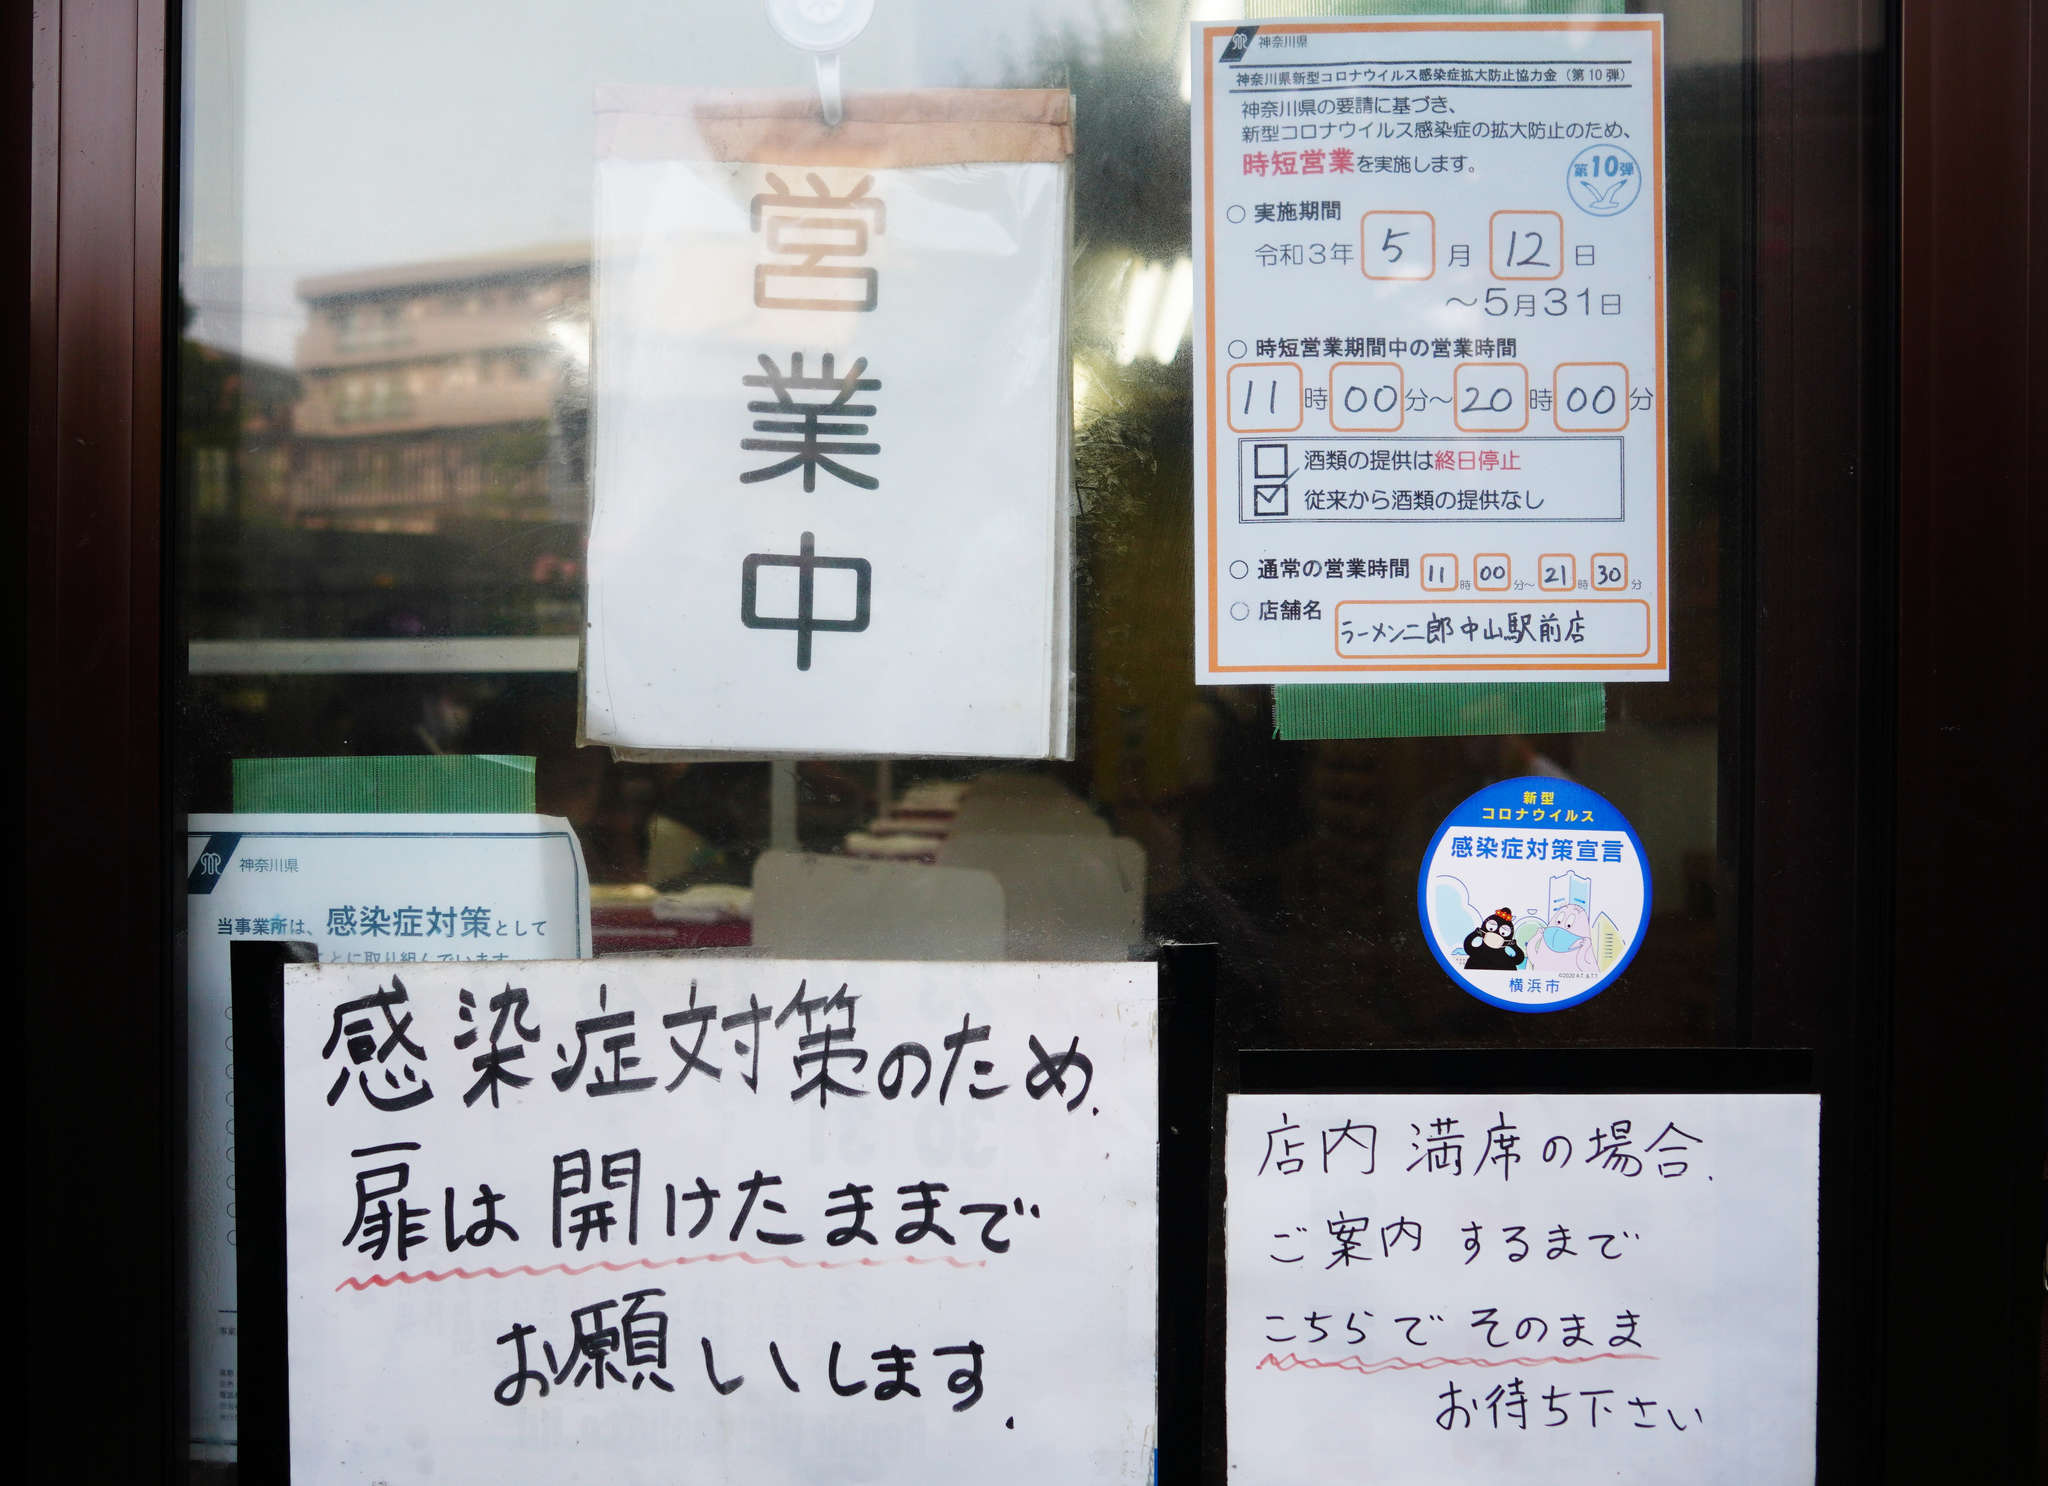 営業中
神奈川県
神奈川県新型コロナウイルス感染症拡大防止協力金（第10弾）
神奈川県の要請に基づき、
新型コロナウイルス感染症の拡大防止のため、
時短営業を実施します。
第10弾
○ 実施期間
令和3年 5 月 12 日
～5月31日
○ 時短営業期間中の営業時間
11 時 00 分～ 20 時 00 分
酒類の提供は終日停止
従来から酒類の提供なし
○ 通常の営業時間 11 時 00 分～ 21 時 30 分
○ 店舗名 ラーメン二郎中山駅前店
新型
コロナウイルス
感染症対策宣言
横浜市
神奈川県
当事業所は、感染症対策として
ことに取り組んでいます
感染症対策のため、
扉は開けたままで
お願いします。
店内満席の場合、
ご案内するまで
こちらでそのまま
お待ち下さい